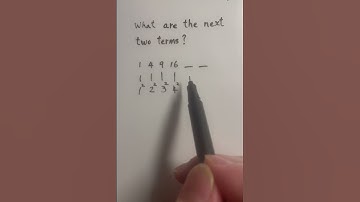 What are the next
two terms?
1 4 9 16 _ _
1² 2² 3² 4²